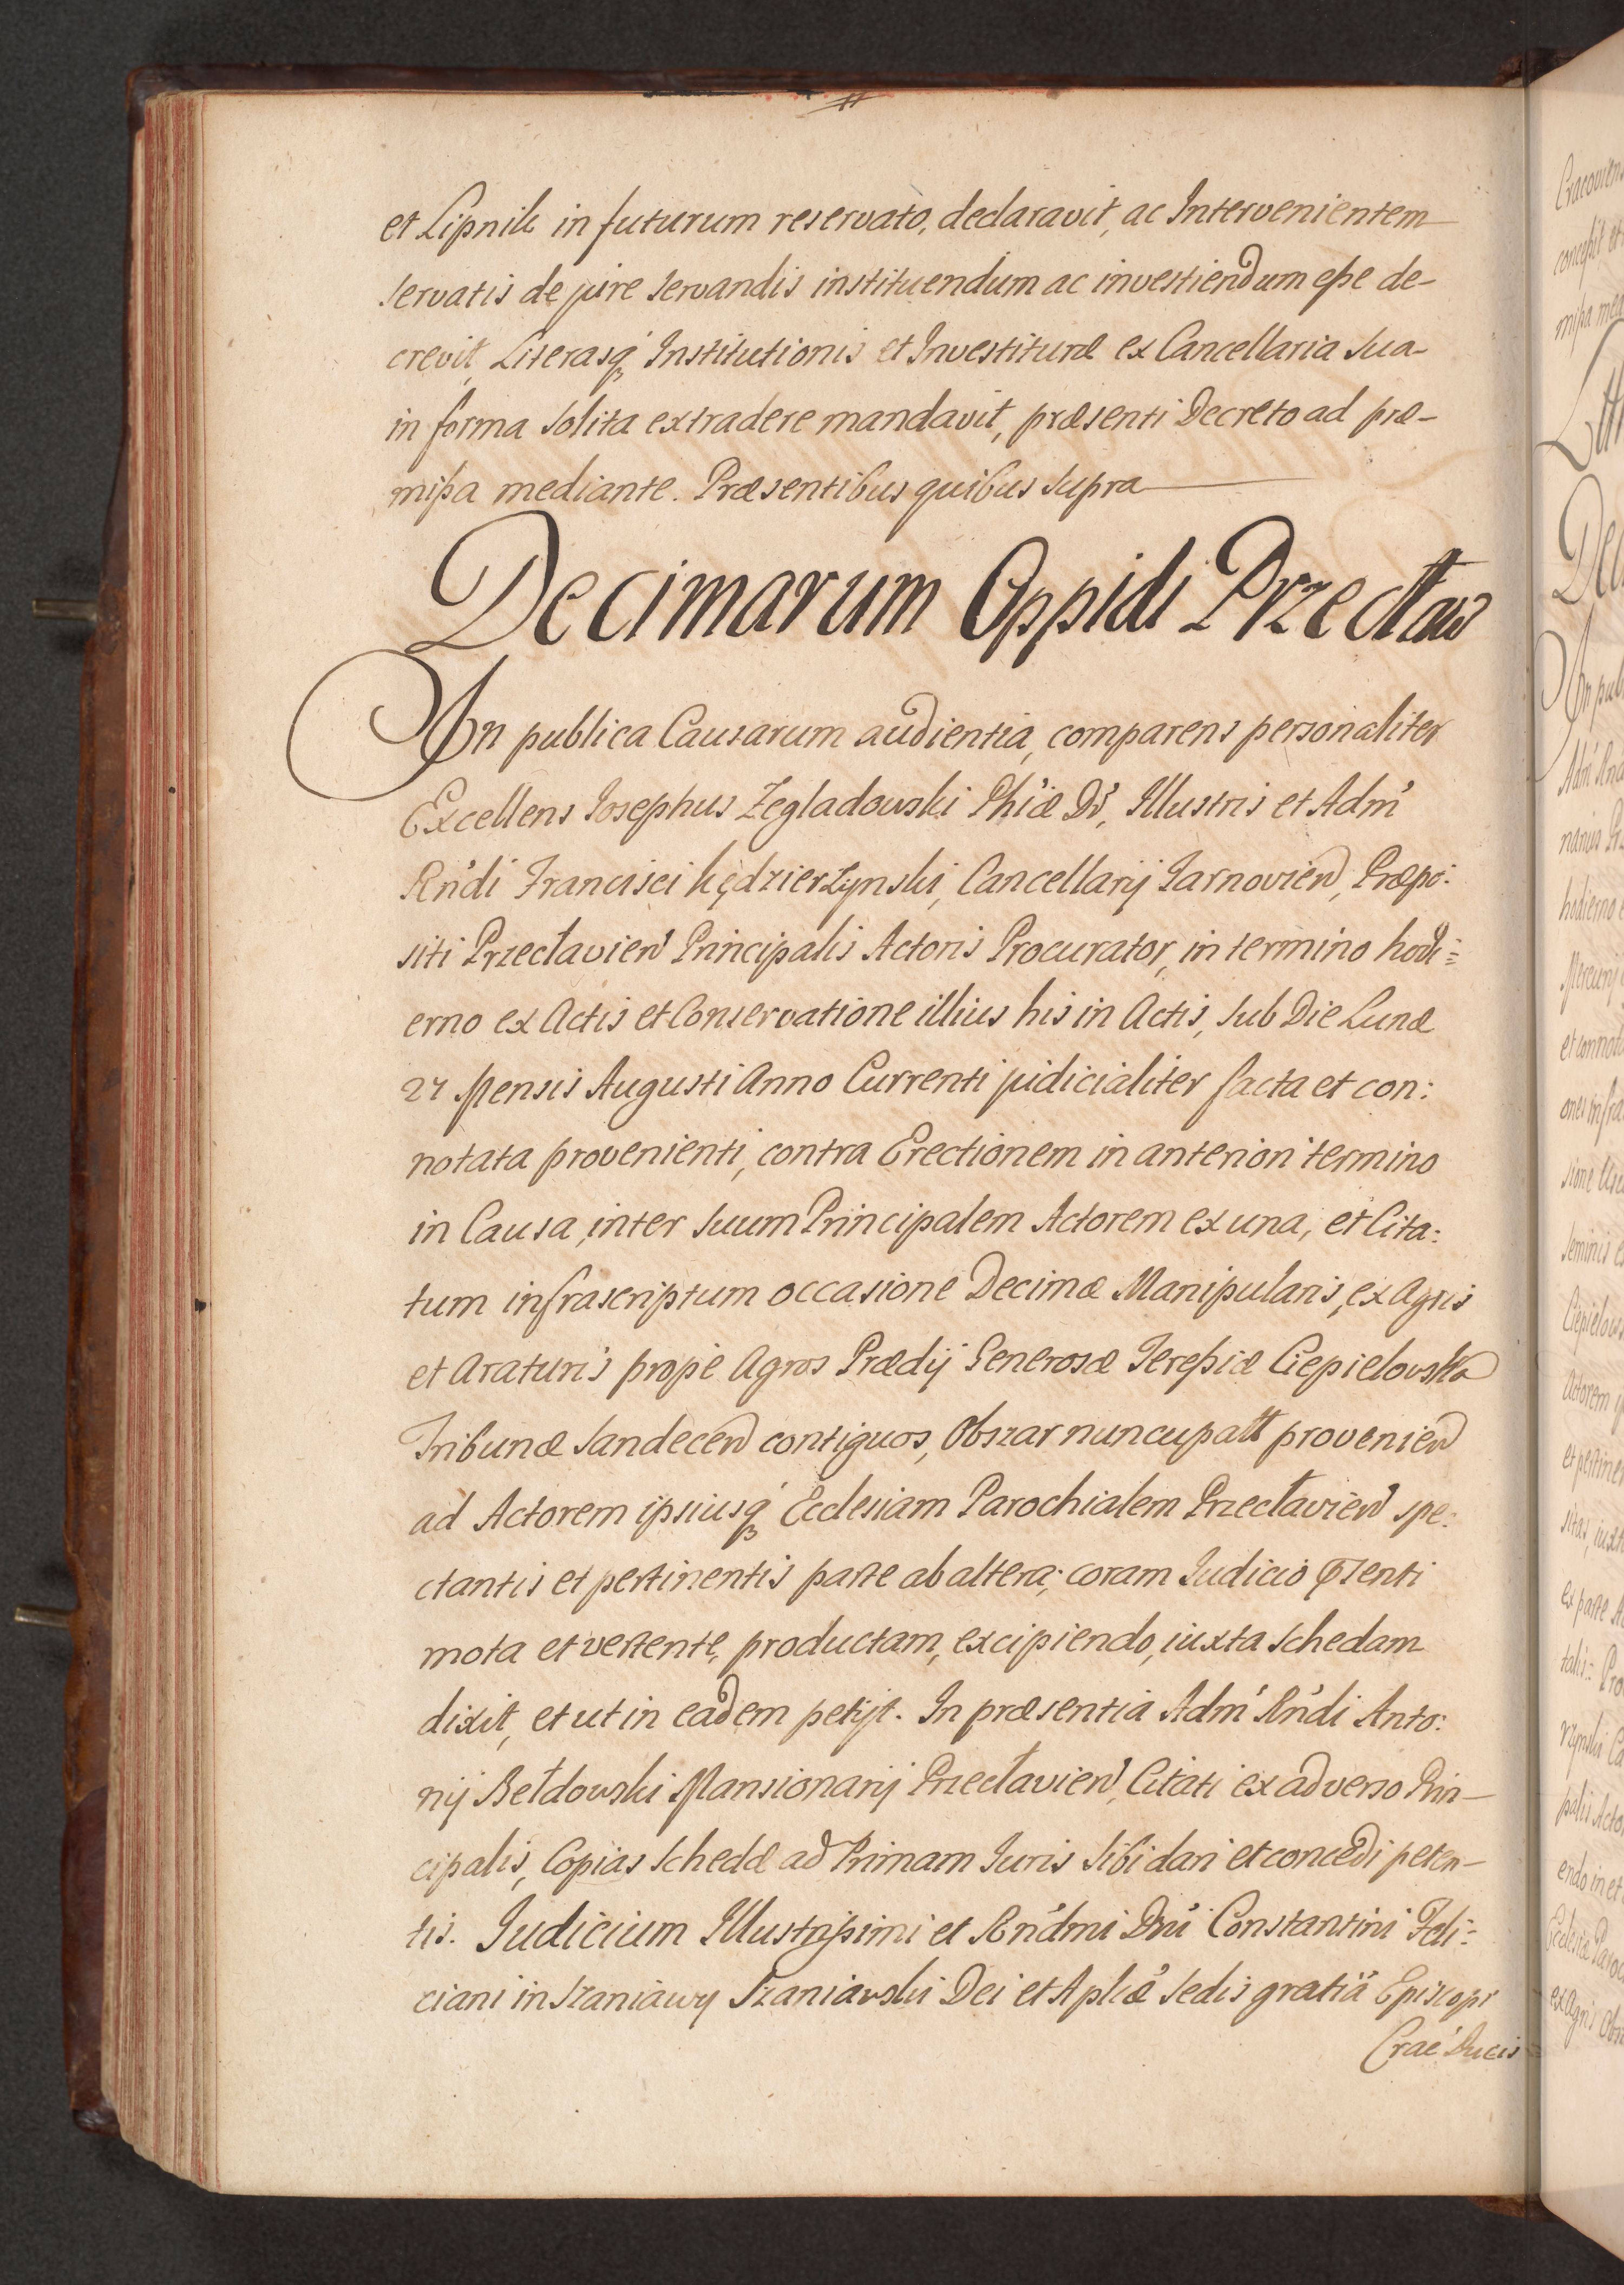 et Lipnik in futurum reservato, declaravit, ac Intervenientem
servatis de jure servandis instituendum ac investiendum esse de-
crevit, Literasq3 Institutionis et Investituræ ex Cancellaria sua
in forma solita extradere mandavit, præsenti Decreto ad præ-
missa mediante. Præsentibus quibus supra
Decimarum Oppidi Przecław
In publica Causarum audientia, comparens personaliter
Excellens Josephus Zegladowski Phiæ Dr, Illustris et Adm
Rndi Francisci Kędzierzynski, Cancellarij Tarnovien, Præpo:
siti Przecłavien Principalis Actoris Procurator, in termino hodi=
erno ex Actis et Conservatione illius his in Actis, sub Die Lunæ
27 Mensis Augusti Anno Currenti judicialiter facta et con:
notata provenienti, contra Erectionem in anteriori termino
in Causa, inter suum Principalem Actorem ex una, et Cita:
tum infrascriptum occasione Decimæ Manipularis, ex Agris
et Araturis prope Agros Prædij Generosæ Teressiæ Ciepielovska
Tribunæ Sandecen contiguos, Obszar nuncupatt provenien
ad Actorem ipsiusq3 Ecclesiam Parochialem Przecłavien spe:
ctantis et pertinentis parte ab altera; coram Judicio pṡenti
mota et vertente, productam, excipiendo, iuxta schedam
dixit, et ut in eadem petijt. In præsentia Adm Rndi Anto:
nij Bełdowski Mansionarij Przecłavien, Citati ex adverso Prin-
cipalis, Copias schedæ ad Primam Juris sibi dari et concedi peten-
tis. Judicium Illustrissimi et Rndmi Dni Constantini Feli:
ciani in Szaniawy Szaniawski Dei et Aplicæ Sedis gratiâ Episcopi
Crac Ducis